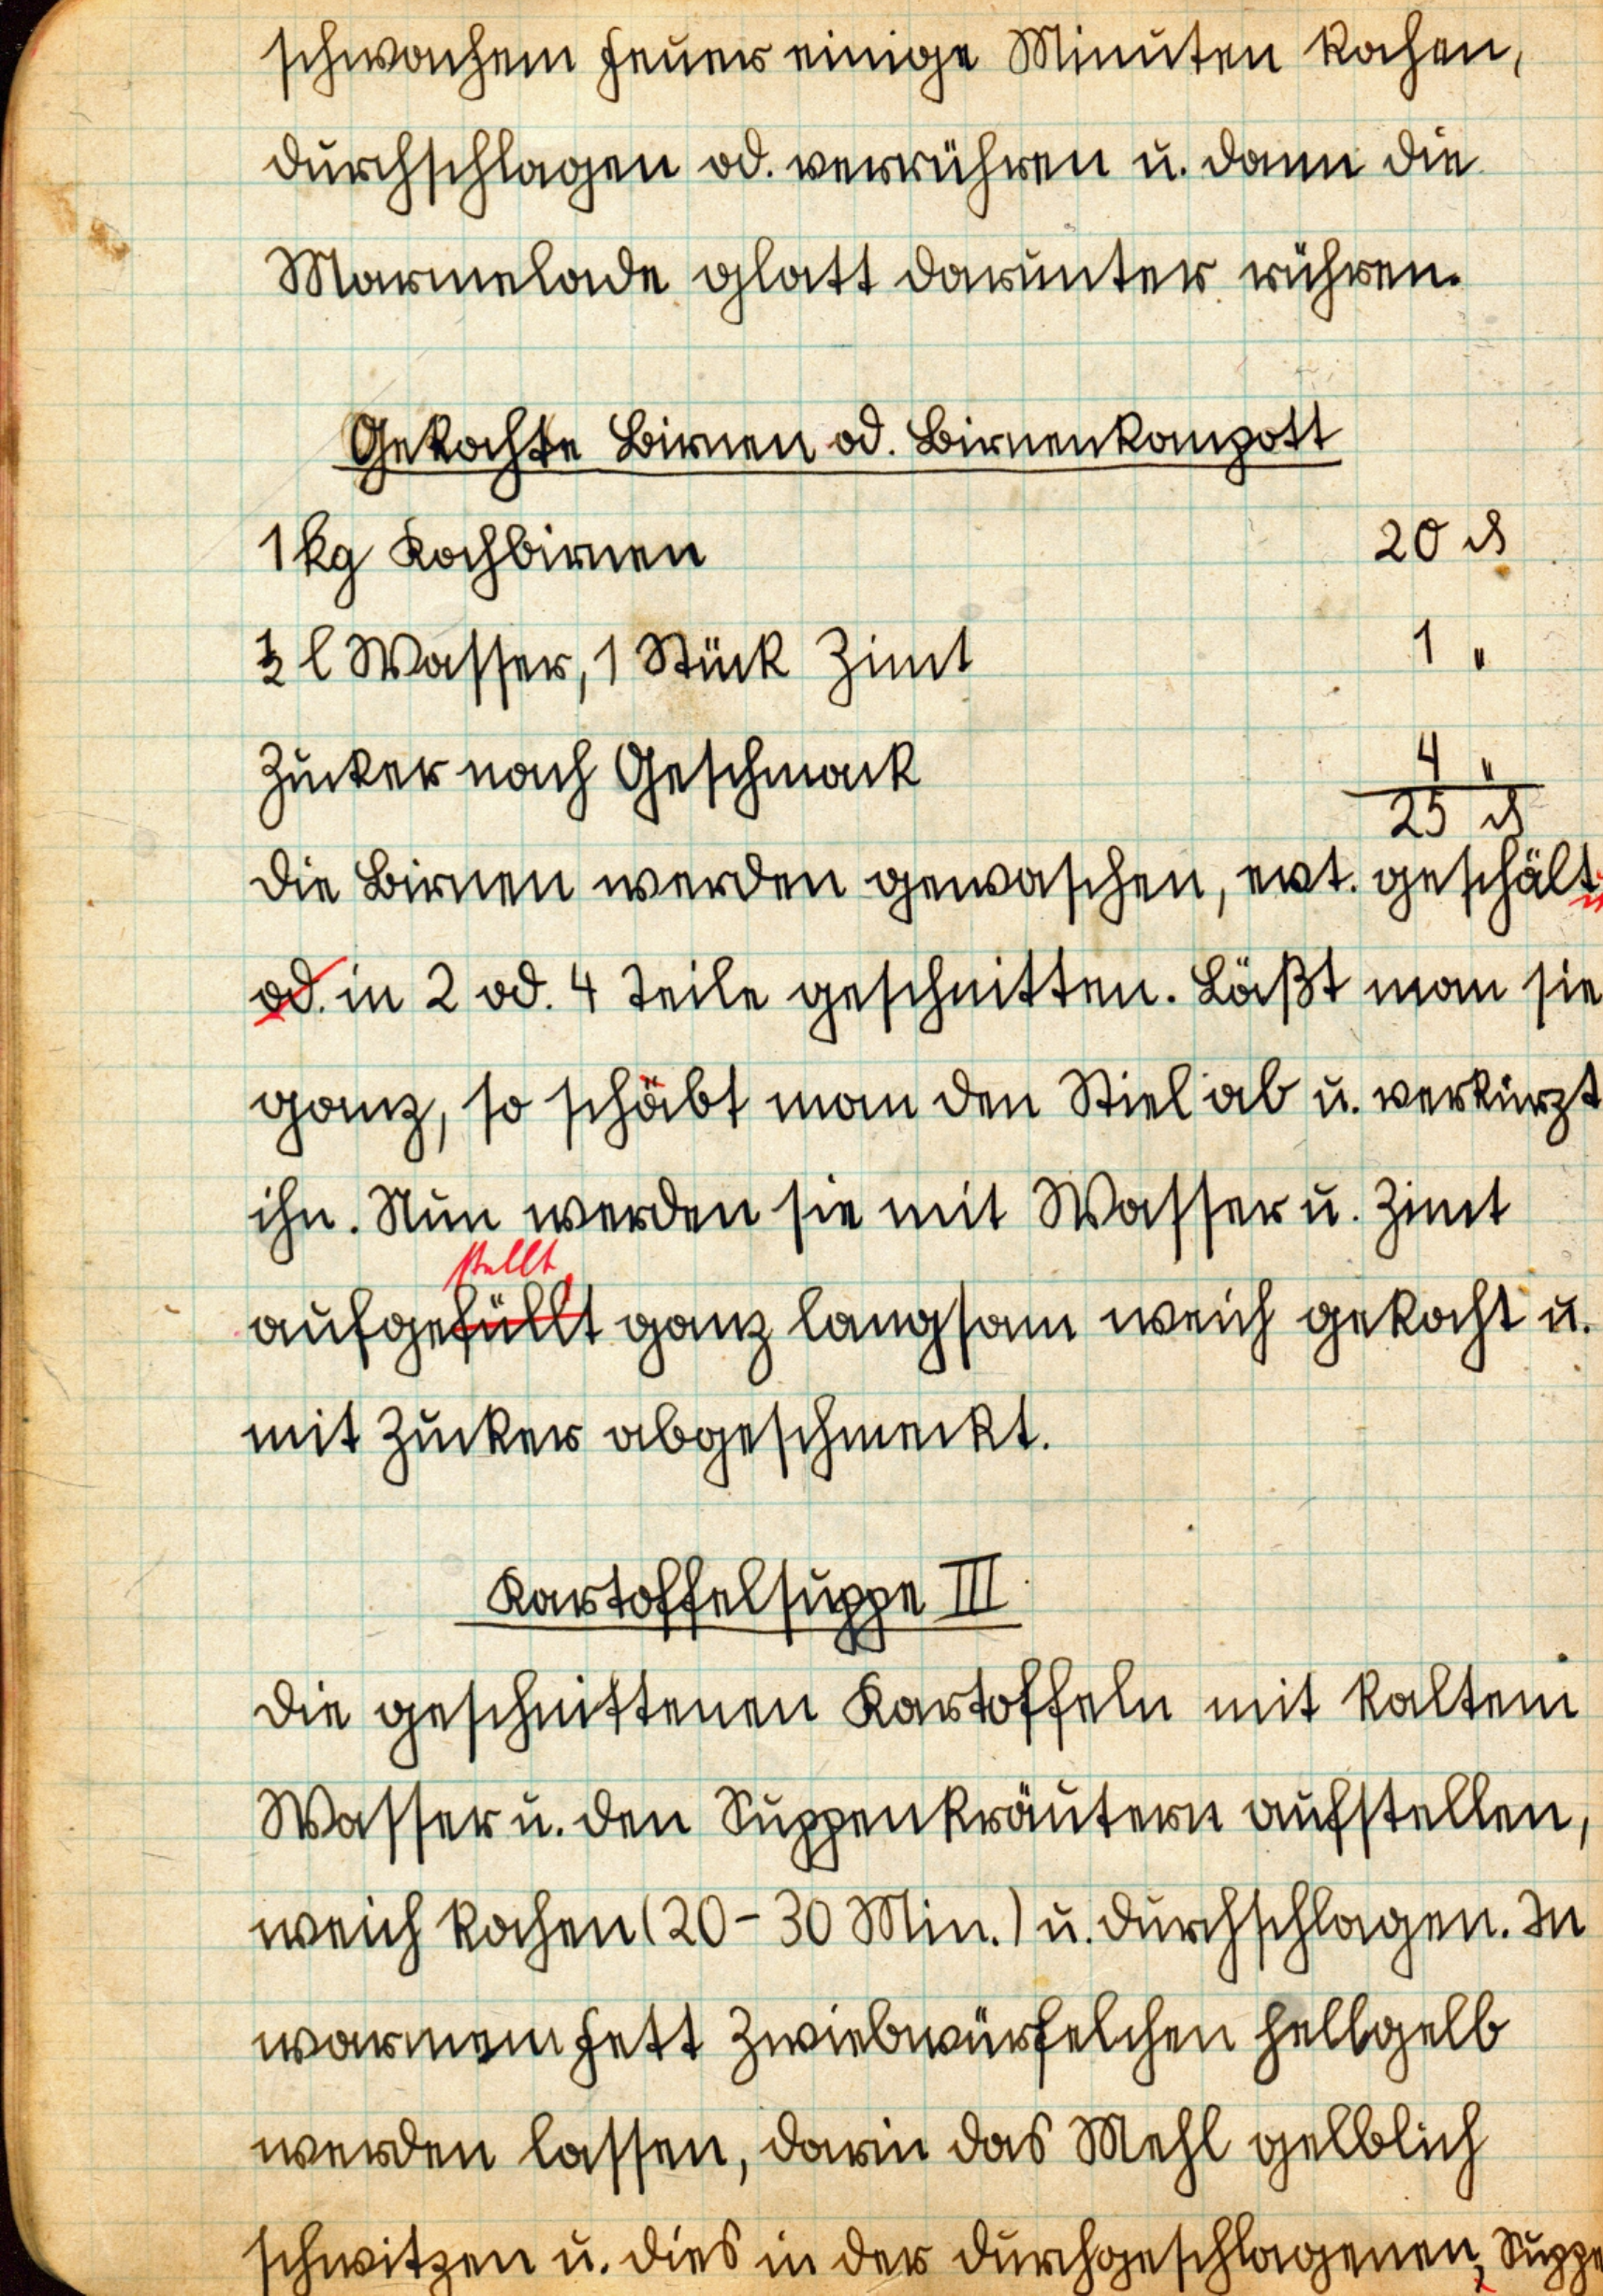 schwachem Feuer einige Minuten kochen,
durchschlagen od. verrühren u. dann die
Marmelade glatt darunter rühren.
Gekochte Birnen od. Birnenkompott
1 kg Kochbirnen 20 ₰
½ l Wasser, 1 Stück Zimt 1 "
Zucker nach Geschmack 4 "
25 ₰
Die Birnen werden gewaschen, evt. geschält u.
od. in 2 od. 4 Teile geschnitten. Läßt man sie
ganz, so schäbt man den Stiel ab u. verkürzt
ihn. Nun werden sie mit Wasser u. Zimt
stellt,
aufgefüllt ganz langsam weich gekocht u.
mit Zucker abgeschmeckt.
Kartoffelsuppe III
Die geschnittenen Kartoffeln mit kaltem
Wasser u. den Suppenkräutern aufstellen,
weich kochen (20-30 Min.) u. durchschlagen. In
warmem Fett Zwiebwürfelchen hellgelb
werden lassen, darin das Mehl gelblich
schwitzen u. dies in der durchgeschlagenen, Suppe